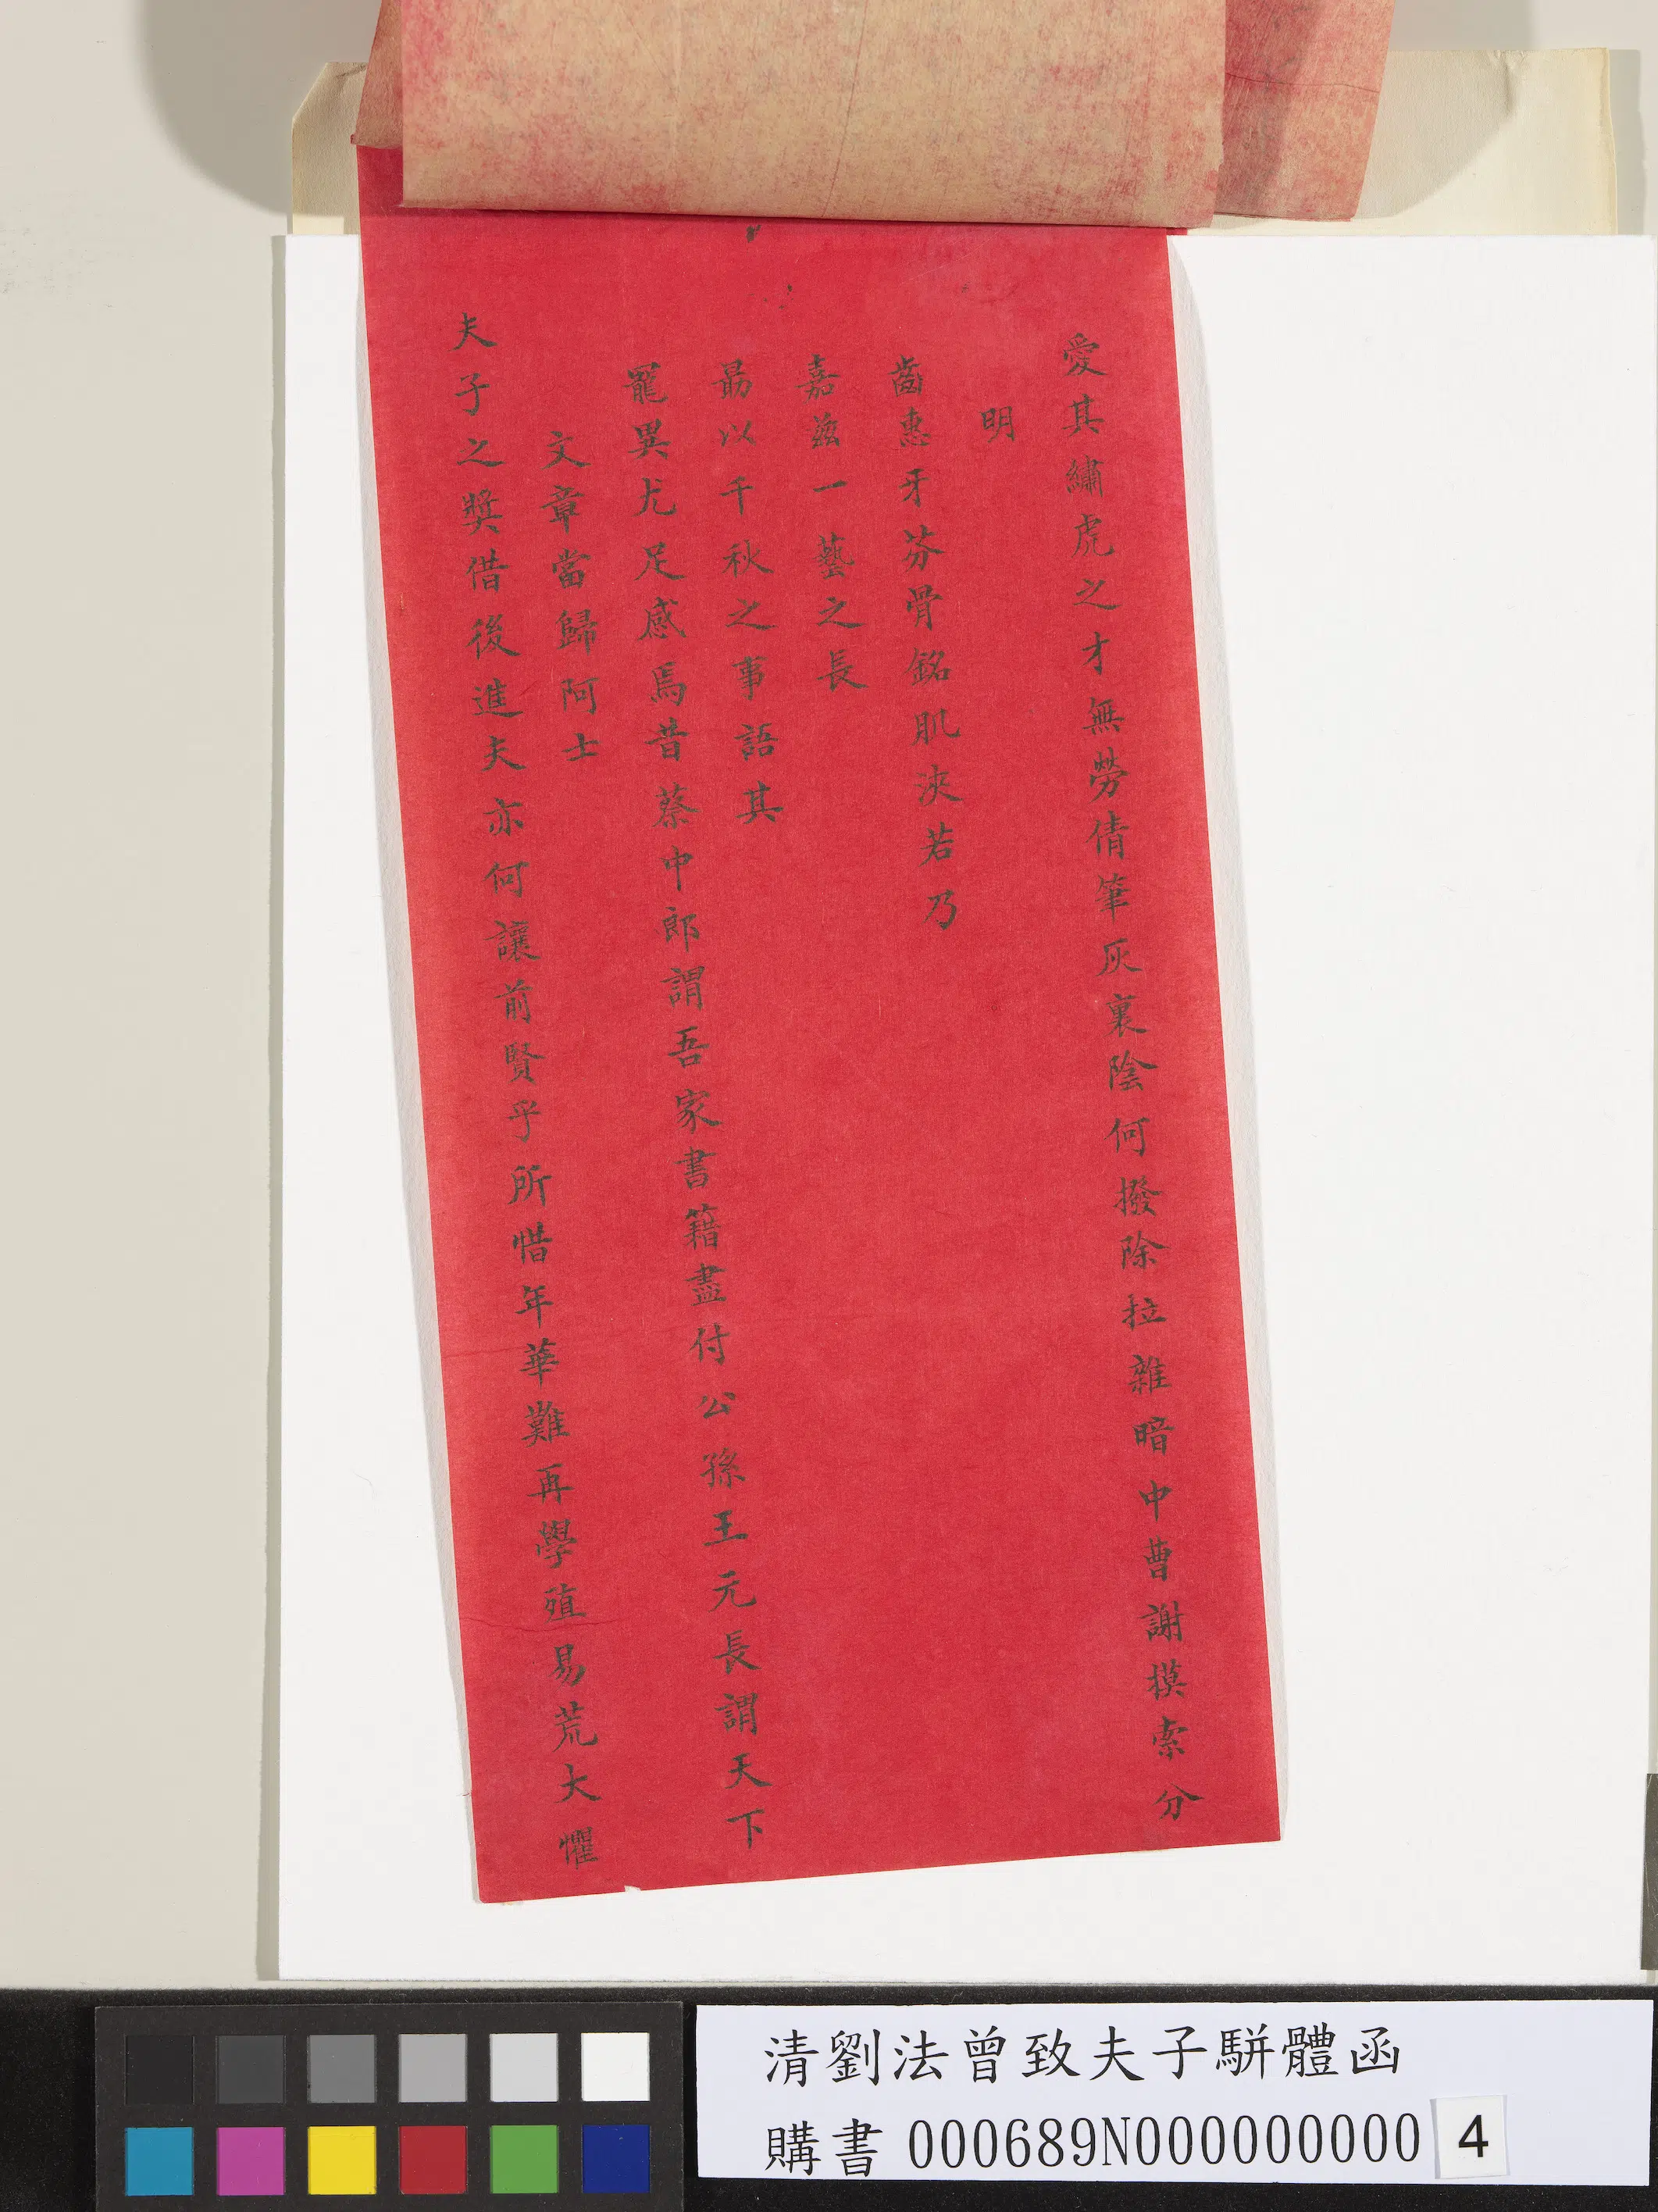 愛其繡虎之才無勞倩筆灰裏陰何撥除拉雜暗中曹謝摸索分
明
齒惠牙芬骨銘肌浹若乃
嘉茲一藝之長
勗以千秋之事語其
寵異尤足感焉昔蔡中郎謂吾家書籍盡付公孫王元長謂天下
文章當歸阿士
夫子之獎借後進夫亦何讓前賢乎所惜年華難再學殖易荒大懼
清劉法曾致夫子駢體函
購書 000689N000000000 4